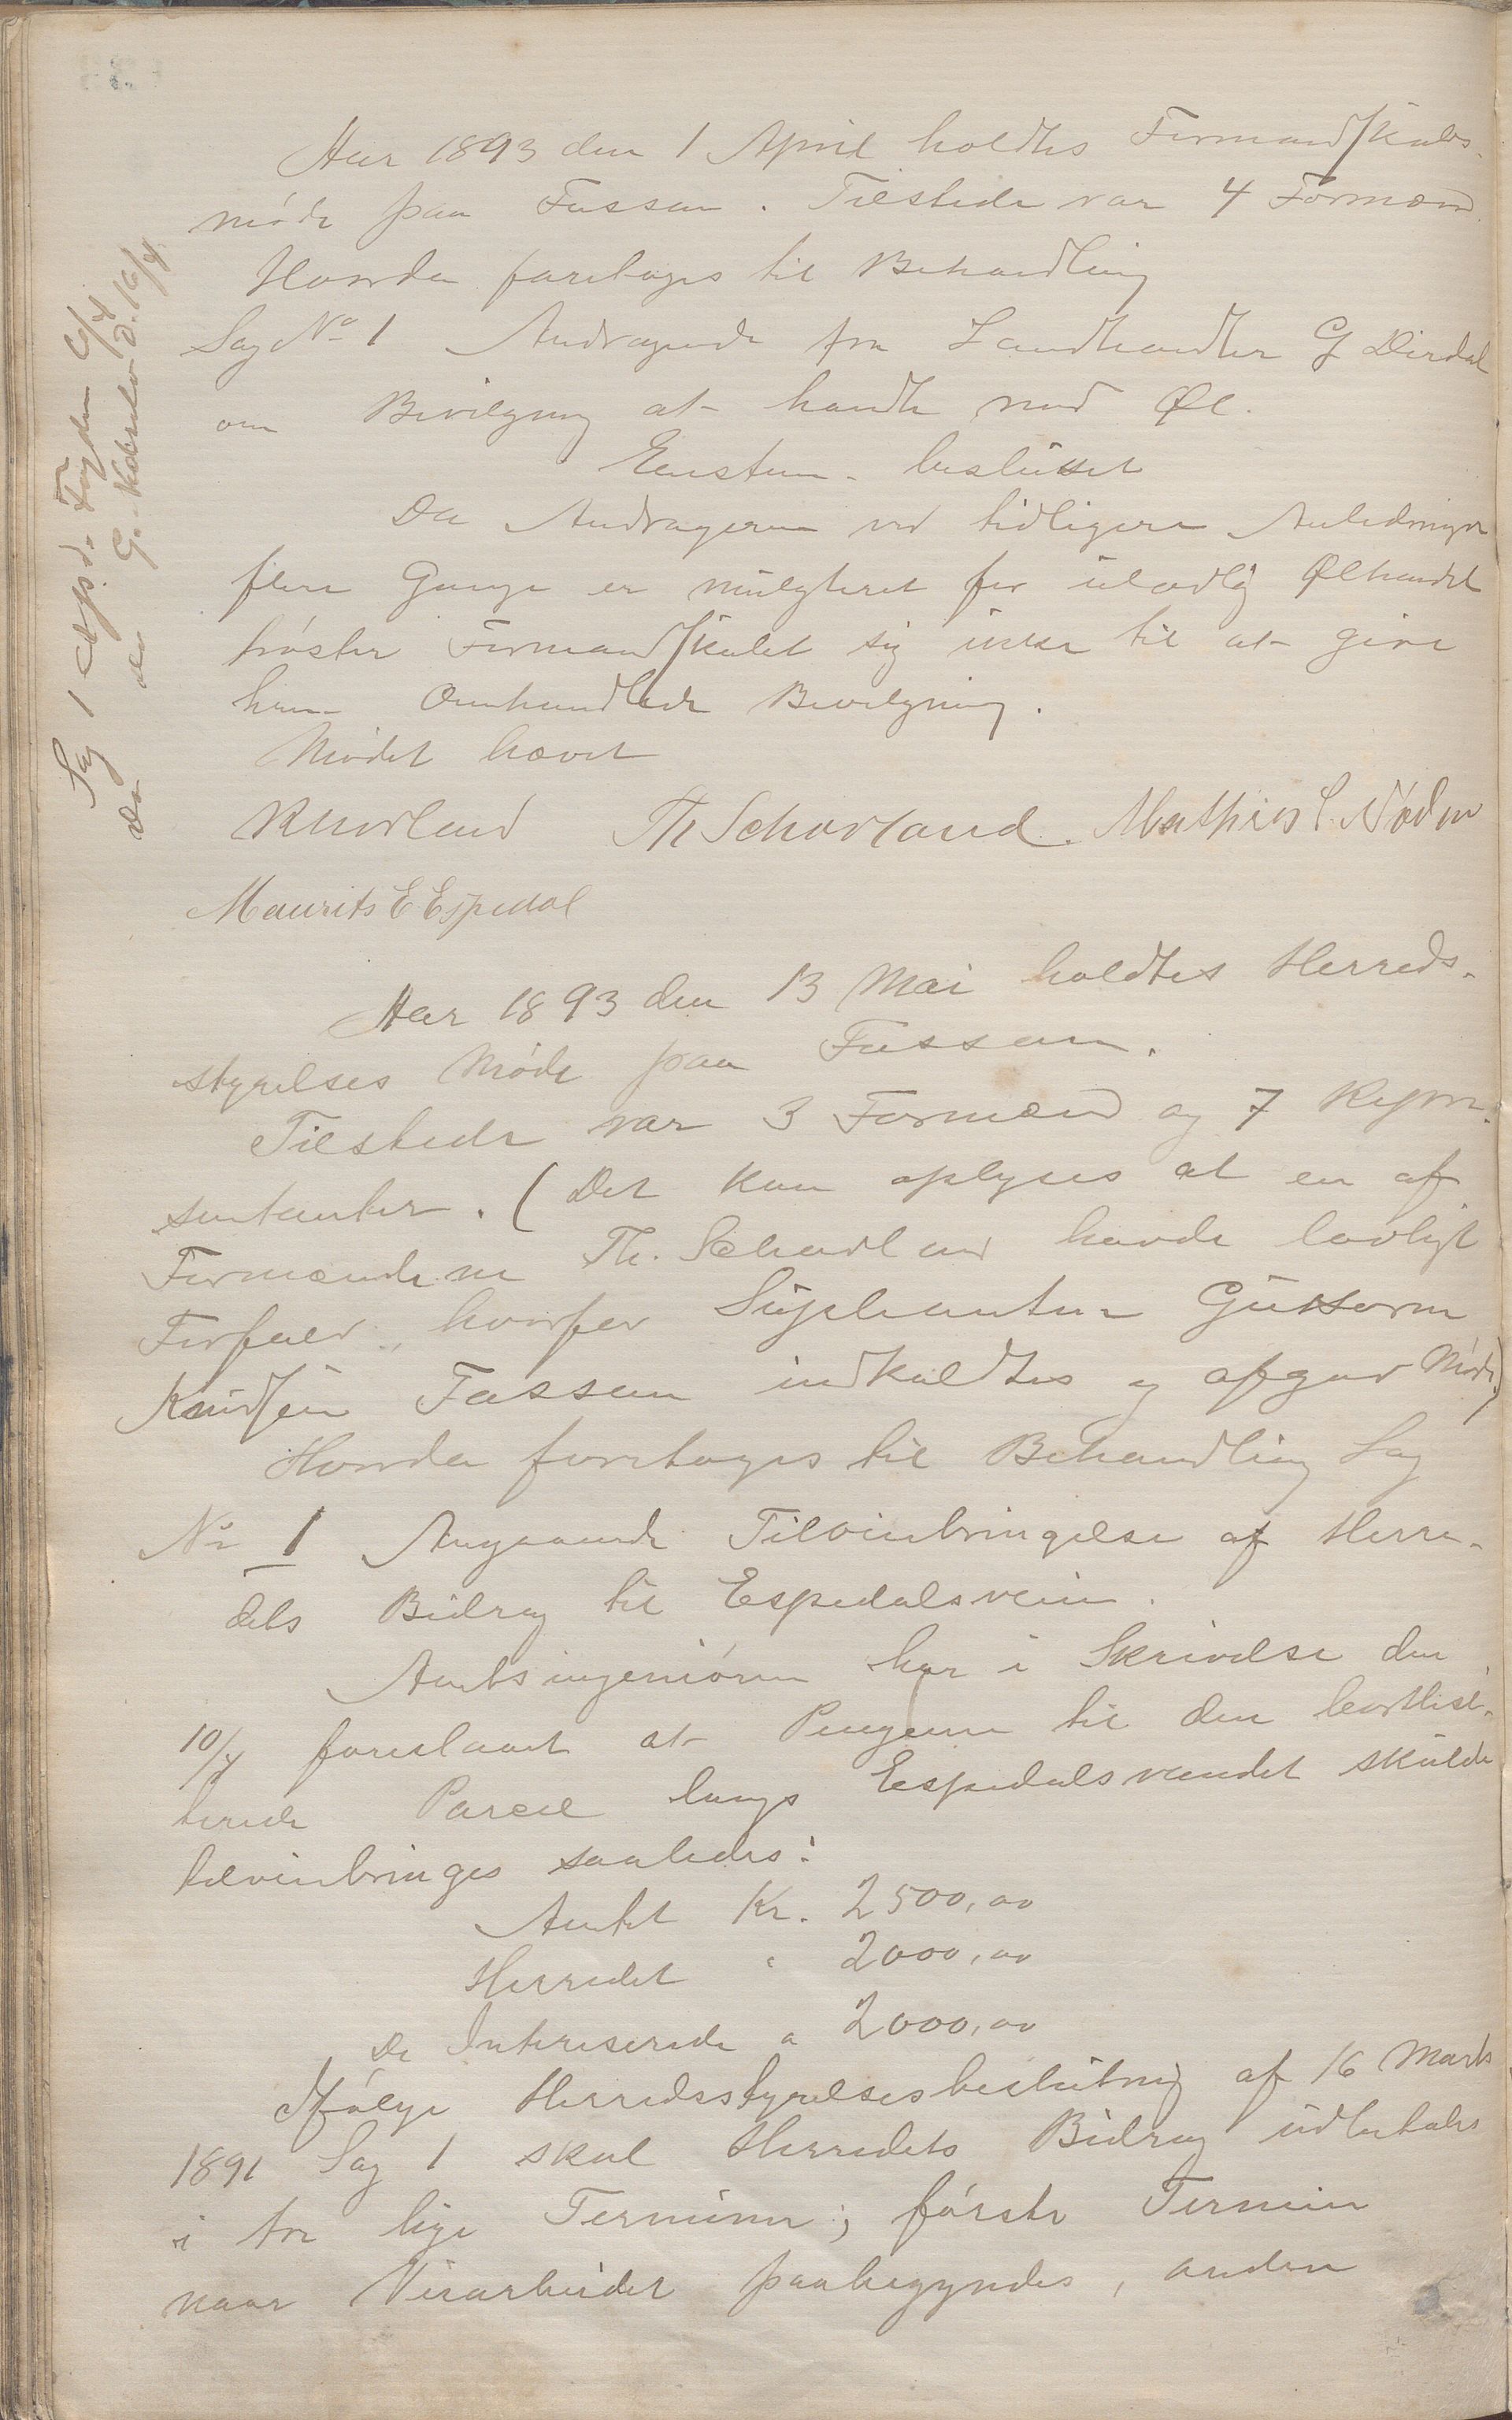 Aar 1893 den 1 April holdtes Formandskabs-
møde paa Fossan. Tilstede var 4 Formænd.
Hvorda foretoges til Behandling
Sag No 1 Andragende fra Landhandler G Dirdal
om Bevilgning at handle med Øl.
Enstem. besluttet
Da Andrageren ved tidligere Anledninger
flere Gange er mulgteret for ulovlig Ølhandel
trøster Formandskabet sig ikke til at give
ham Omhandlede Bevilgning.
Mødet hævet
Th Schavland. Mathias
Maurits E Espedal
Sag 1 Exped. Fogden 6/4
Do do G. d. 16/4.
Aar 1893 den 13 Mai holdtes Herreds-
styrelses Møde paa Fossan.
Tilstede var 3 Formænd og 7 Repræ-
sentanter. (Det kan oplyses at en af
Formændene Th. Schavland havde lovligt
Forfald, hvorfor Suppleanten Guttorm
Knudsen Fossan indkaldtes og afgav Møde)
Hvorda foretoges til Behandling Sag
No 1 Angaaende Tilveiebringelse af Herre-
dets Bidrag til Espedalsveien.
Amtsingeniøren har i Skrivelse den
10/4 foreslaaet at Pengene til den bortlici-
terede Parcel langs Espedalsvandet skulde
tilveiebringes saaledes:
Amtet Kr. 2500,00
Herredet " 2000,00
De Interiserede " 2000,00
Ifølge Herredsstyrelsesbeslutning af 16 Marts
1891 Sag 1 skal Herredets Bidrag udbetales
i tre lige Terminer; første Termin
naar Veiarbeidet paabegyndes, anden